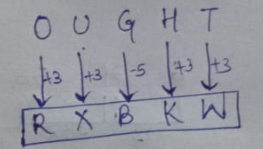 O U G H T
+3 +3 -5 +3 +3
R X B K W